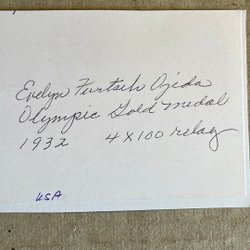 Evelyn Furtsch Ojeda
Olympic Gold medal
1932 4 X 100 relay
USA